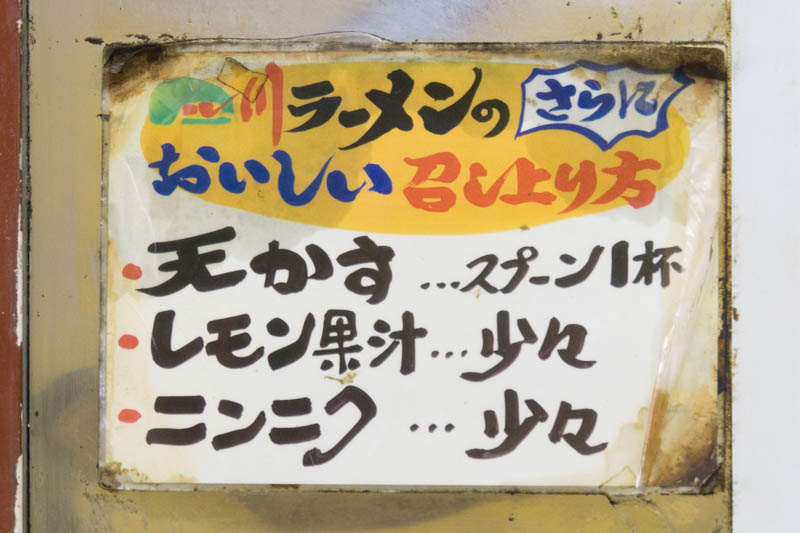 川ラーメンの さらに
おいしい 召し上り方
・天かす…スプーン1杯
・レモン果汁…少々
・ニンニク…少々